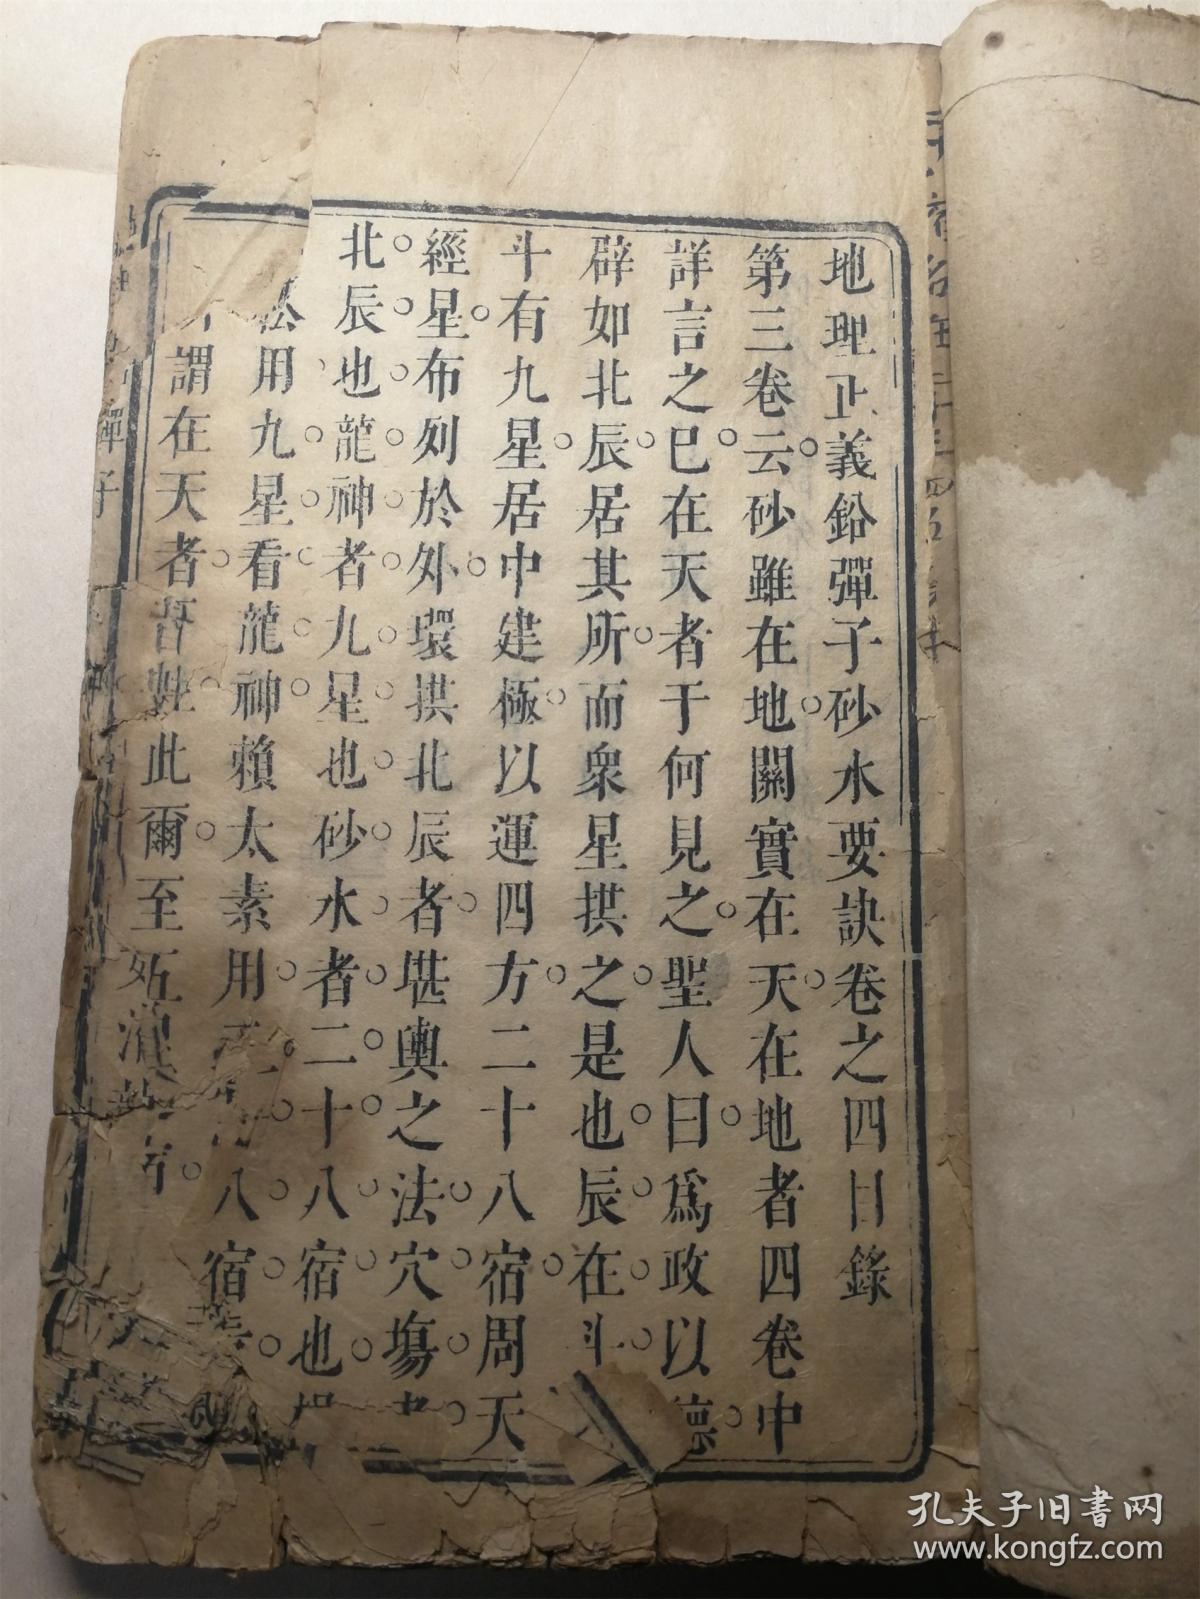 地理正義鉛彈子砂水要訣卷之四目錄
第三卷云砂雖在地關實在天在地者四卷中
詳言之已在天者于何見之聖人曰爲政以德
辟如北辰居其所而衆星拱之是也辰在斗
斗有九星居中建極以運四方二十八宿周天
經星布列於外環拱北辰者堪輿之法穴塲
北辰也龍神者九星也砂水者二十八宿也
松用九星看龍神賴太素用八宿
謂在天者昔此爾至
彈子
孔夫子旧書网
www.kongfz.com